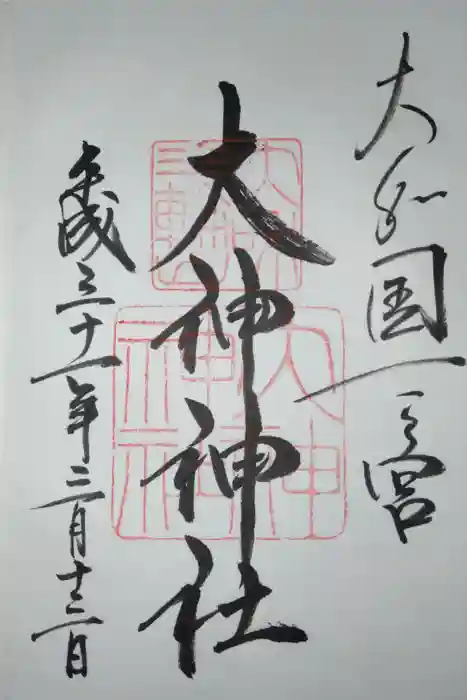 大和国一之宮
大神神社
平成三十一年三月十三日
大神神社